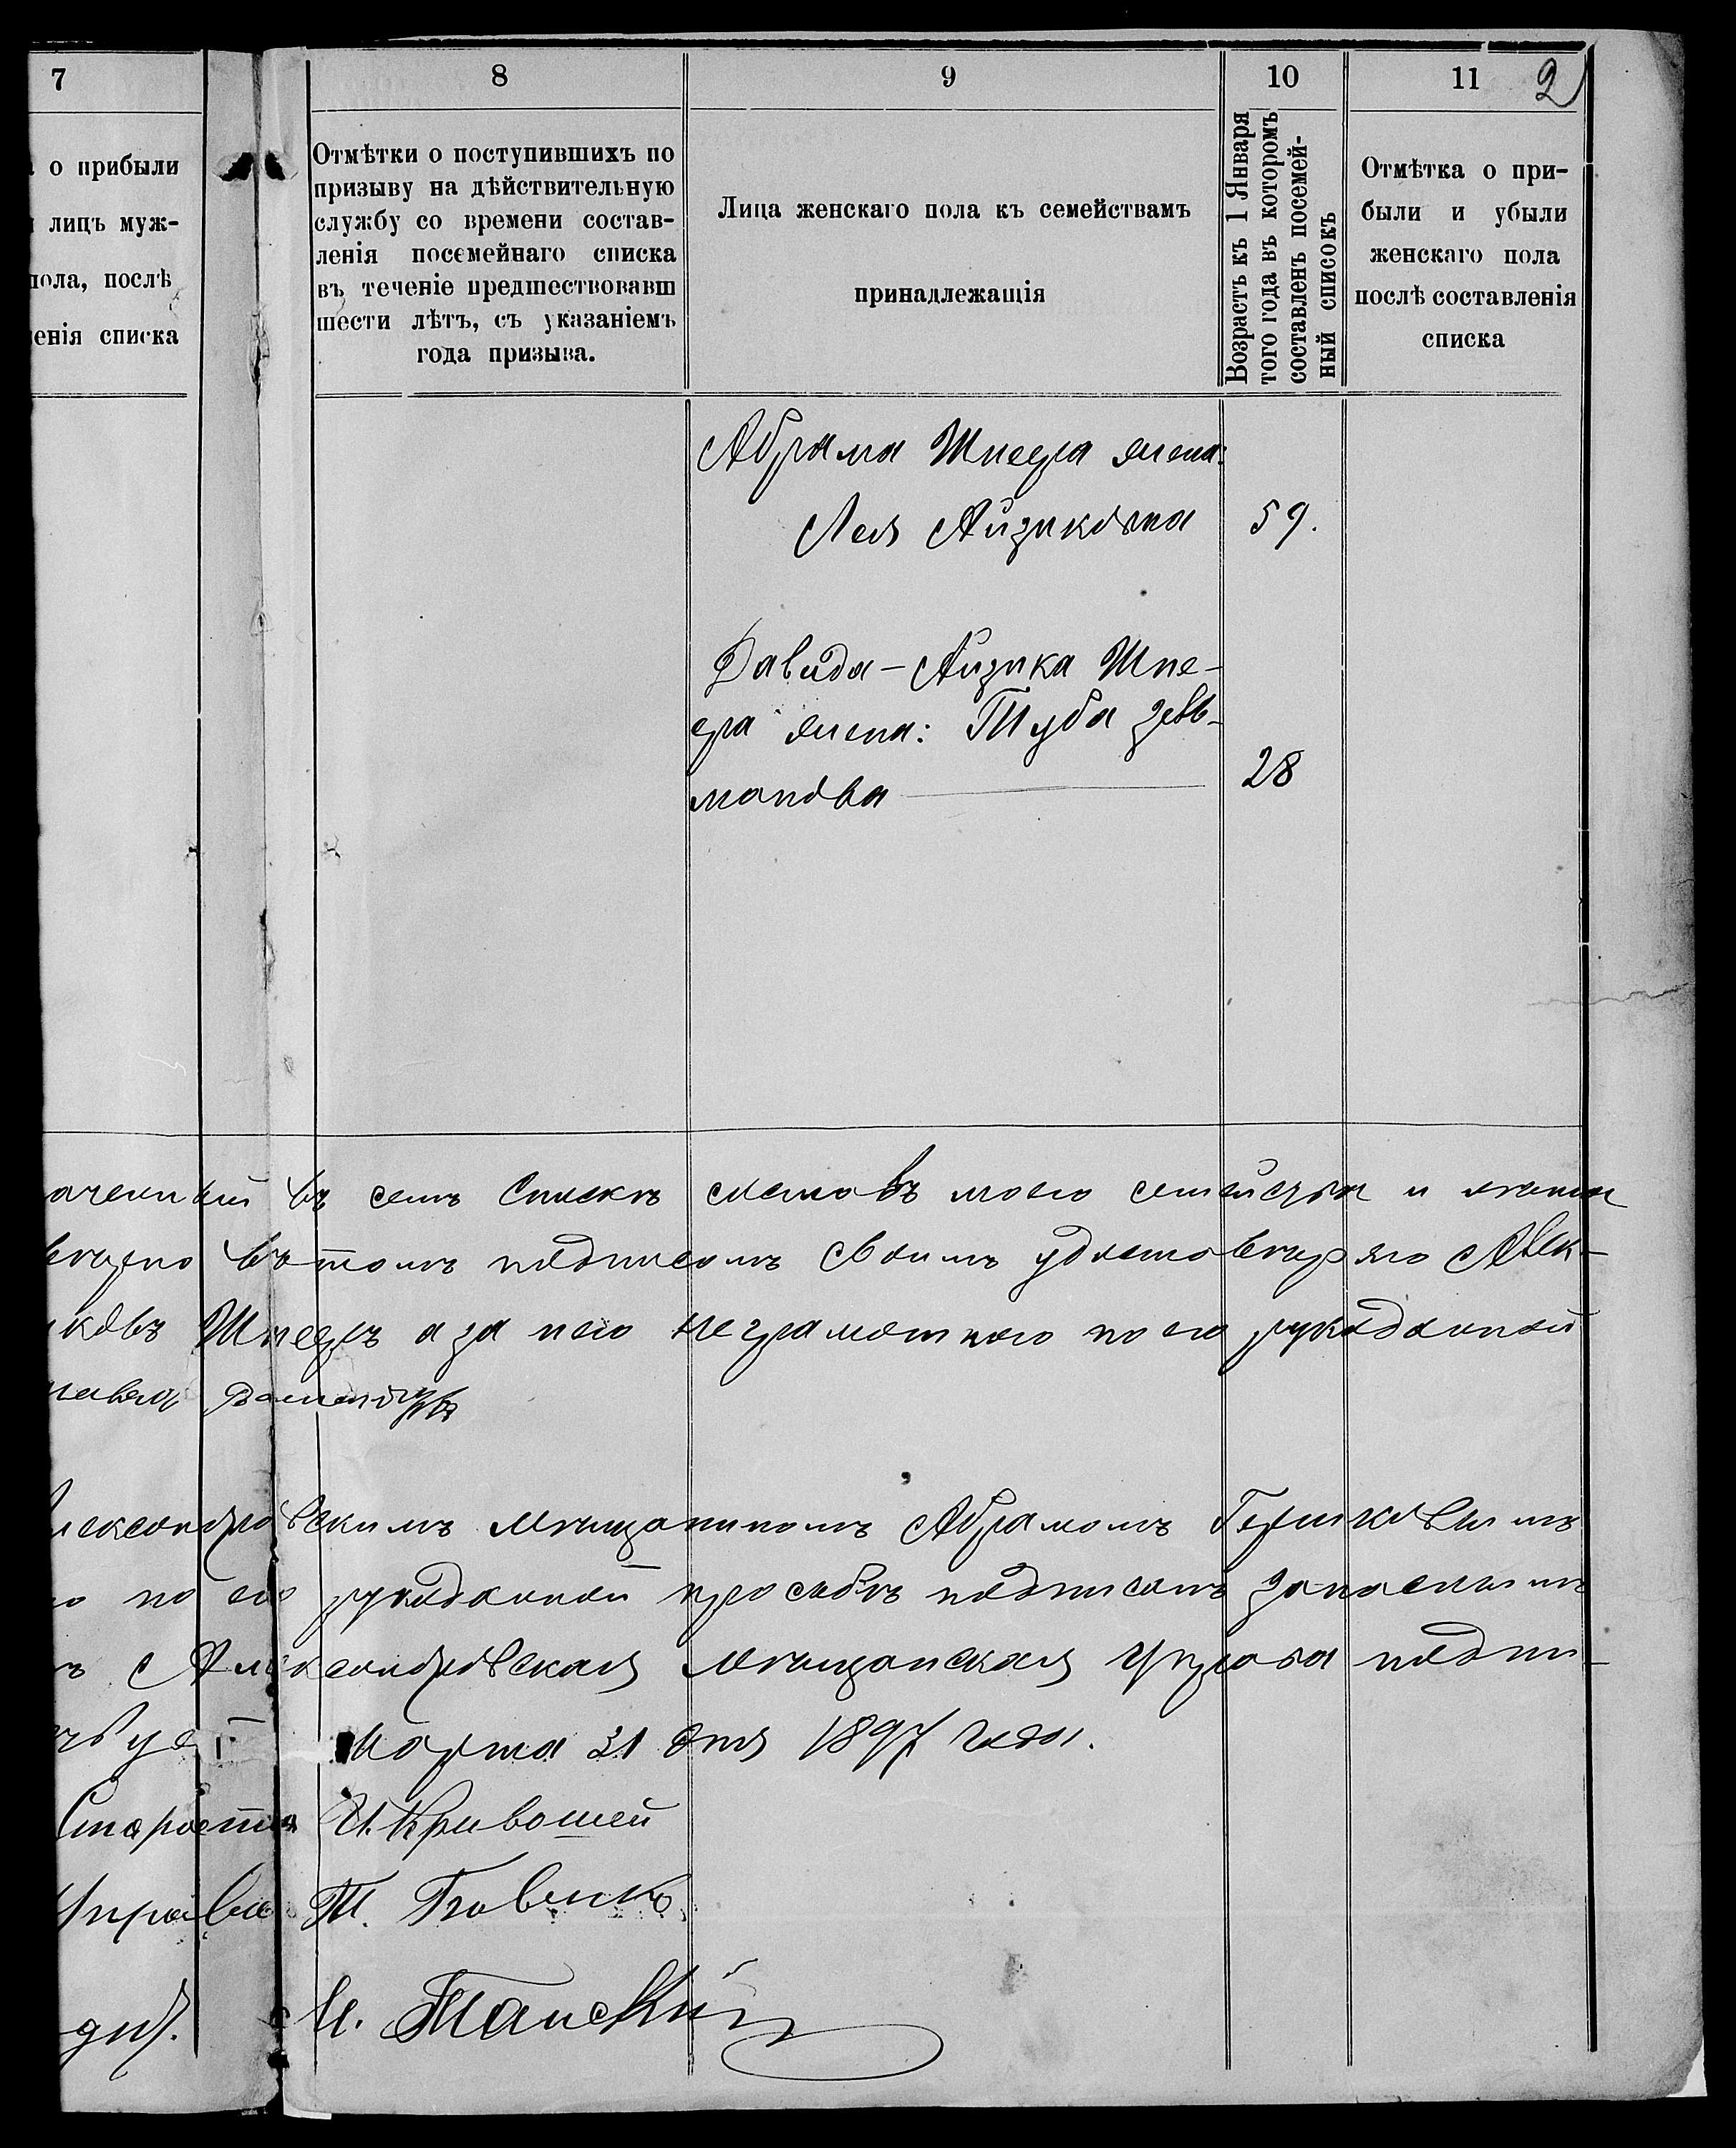 7
8
9
10
11
2
о прибыли
лицъ муж-
пола, послѣ
енія списка
Отмѣтки о поступившихъ по
призыву на дѣйствительную
службу со времени состав-
ленія посемейнаго списка
въ теченіе предшествовавш
шести лѣтъ, съ указаніемъ
года призыва.
Лица женскаго пола къ семействамъ
принадлежащія
Возрастъ къ 1 Января
того года въ которомъ
составленъ посемей-
ный списокъ
Отмѣтка о при-
были и убыли
женскаго пола
послѣ составленія
списка
Абрама Шпеера жена:
Лея Айзикова 59.
Давида-Айзика Шпе-
ера жена: Туба Зель-
манова 28
въ семъ спискѣ членовъ моего семейства и
въ томъ подписомъ своимъ удостовѣряю Алек-
ковъ Шпееръ а за него неграмотнаго по его рукоданной
лександровскимъ мѣщаниномъ Абрамомъ Гершковымъ
по его рукоданной просьбѣ подписанъ запаснымъ
Александровская мѣщанская Управа подпи-
Марта 31 дня 1897 года.
Староста И. Кривошей
Управы Т.
И. Танскій